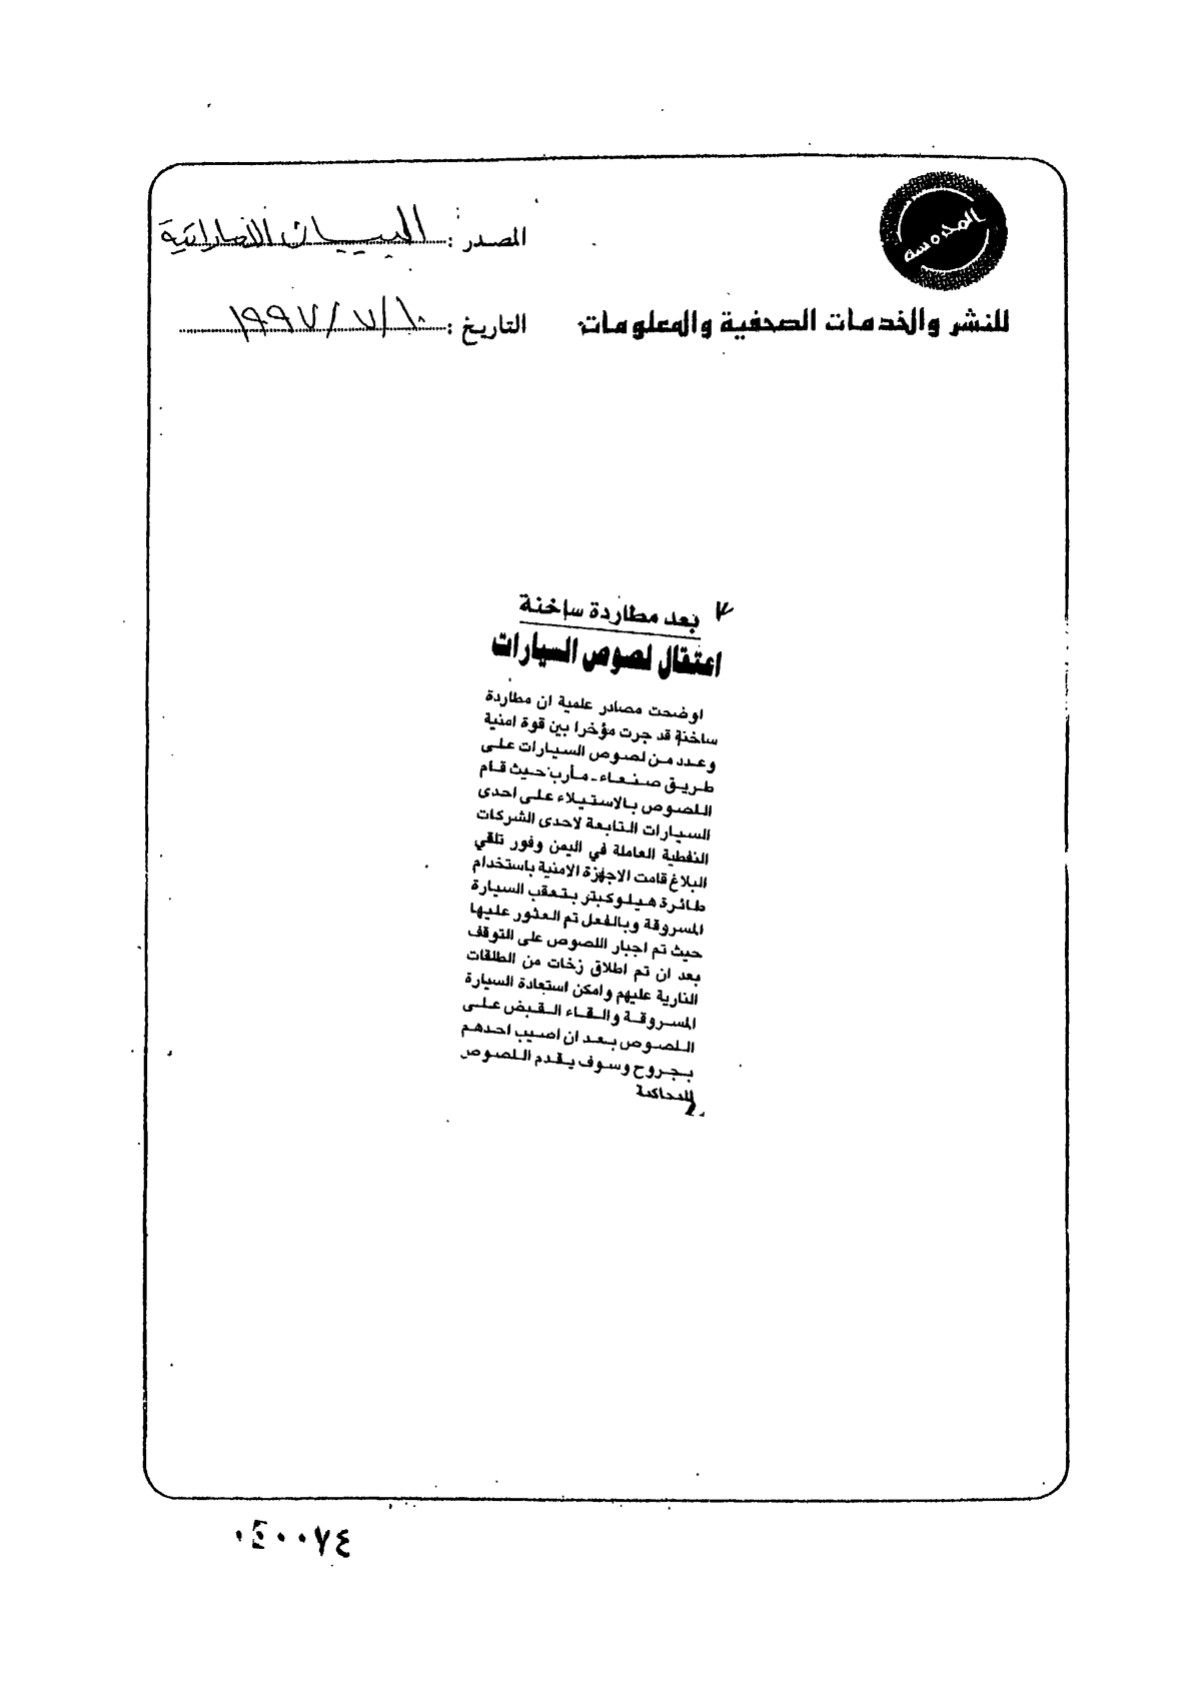 المحروسة
المصدر : البيان الاماراتية
للنشر والخدمات الصحفية والمعلومات
التاريخ : ١٩٩٧/٧/١٠
بعد مطاردة ساخنة
اعتقال لصوص السيارات
اوضحت مصادر علمية ان مطاردة
ساخنة قد جرت مؤخرا بين قوة امنية
وعدد من لصوص السيارات على
طريق صنعاء - مأرب حيث قام
اللصوص بالاستيلاء على احدى
السيارات التابعة لاحدى الشركات
النفطية العاملة في اليمن وفور تلقي
البلاغ قامت الاجهزة الامنية باستخدام
طائرة هيلوكبتر بتعقب السيارة
المسروقة وبالفعل تم العثور عليها
حيث تم اجبار اللصوص على التوقف
بعد ان تم اطلاق زخات من الطلقات
النارية عليهم وامكن استعادة السيارة
المسروقة والقاء القبض على
اللصوص بعد ان اصيب احدهم
بجروح وسوف يقدم اللصوص
للمحاكمة